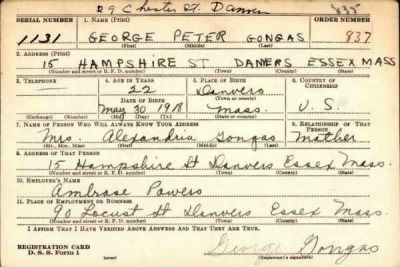 29 Chester St. Danvers 835
SERIAL NUMBER 1. NAME (Print) ORDER NUMBER
1131 GEORGE PETER GONGAS 837
(First) (Middle) (Last)
2. ADDRESS (Print)
15 HAMPSHIRE ST DANERS ESSEX MASS
(Number and street or R. F. D. number) (Town) (County) (State)
3. TELEPHONE 4. AGE IN YEARS 5. PLACE OF BIRTH 6. COUNTRY OF CITIZENSHIP
22 Danvers
DATE OF BIRTH (Town or county)
May 30 1918 Mass. U. S.
(Exchange) (Number) (Mo.) (Day) (Yr.) (State or country)
7. NAME OF PERSON WHO WILL ALWAYS KNOW YOUR ADDRESS 8. RELATIONSHIP OF THAT PERSON
Mrs. Alexandria Gongas Mother
(Mr., Mrs., Miss) (First) (Middle) (Last)
9. ADDRESS OF THAT PERSON
15 Hampshire St Danvers Essex Mass.
(Number and street or R. F. D. number) (Town) (County) (State)
10. EMPLOYER'S NAME
Ambrose Powers
11. PLACE OF EMPLOYMENT OR BUSINESS
90 Locust St Danvers Essex Mass.
(Number and street or R. F. D. number) (Town) (County) (State)
I AFFIRM THAT I HAVE VERIFIED ABOVE ANSWERS AND THAT THEY ARE TRUE.
REGISTRATION CARD
D. S. S. Form 1 George Gongas
(over) (Registrant's signature)